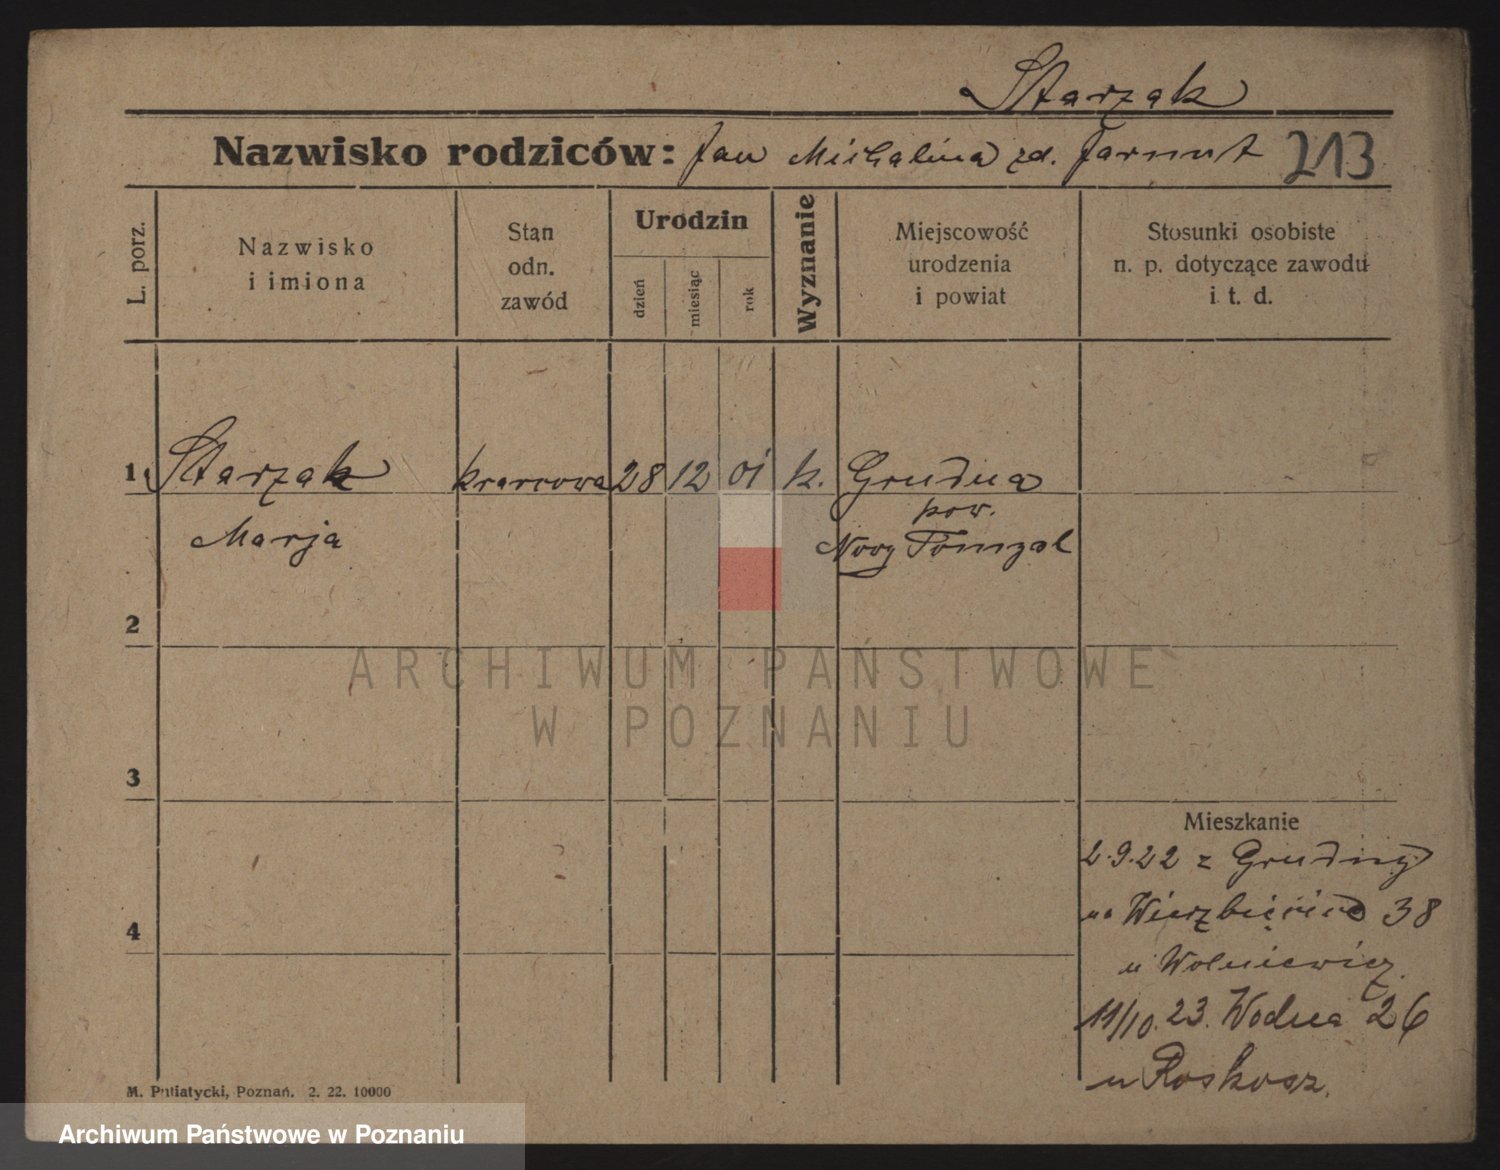 Starzak
Nazwisko rodziców: Jan Michalina zd. Jarmut 213
L. porz.
Nazwisko
i imiona
Stan
odn.
zawód
Urodzin
dzień
miesiąc
rok
Wyznanie
Miejscowość
urodzenia
i powiat
Stosunki osobiste
n. p. dotyczące zawodu
i t. d.
1 Starzak krawcowa 28 12 01 k. Grudna
pow.
Marja Nowy Tomysl
2
ARCHIWUM PAŃSTWOWE
W POZNANIU
3
Mieszkanie
2.9.22 z Grudny
na 38
4
u Wolniewicz.
11/10.23. Wodna 26
u Roskosz.
M. Putiatycki, Poznań. 2. 22. 10000
Archiwum Państwowe w Poznaniu